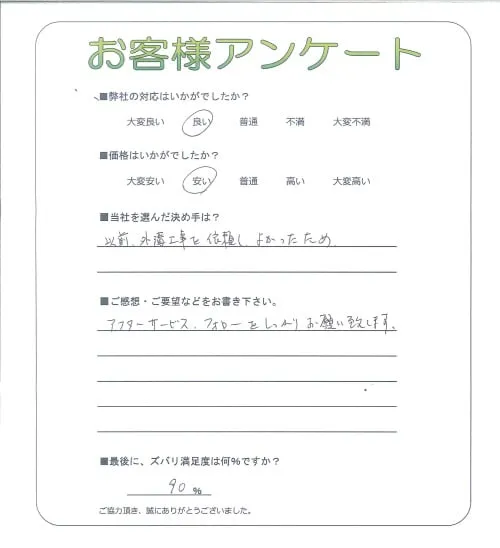 お客様アンケート
■弊社の対応はいかがでしたか？
大変良い 良い 普通 不満 大変不満
■価格はいかがでしたか？
大変安い 安い 普通 高い 大変高い
■当社を選んだ決め手は？
以前、外溝工事を依頼し、よかったため
■ご感想・ご要望などをお書き下さい。
アフターサービス、フォローをしっかりお願い致します。
■最後に、ズバリ満足度は何%ですか？
90 %
ご協力頂き、誠にありがとうございました。